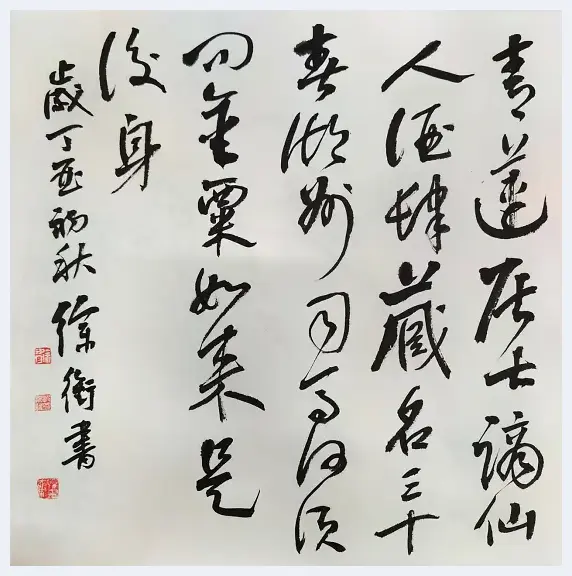 青蓮居士謫仙
人酒肆藏名三十
春湖州司馬何須
問金粟如来是
後身
歲丁酉初秋徐衡書